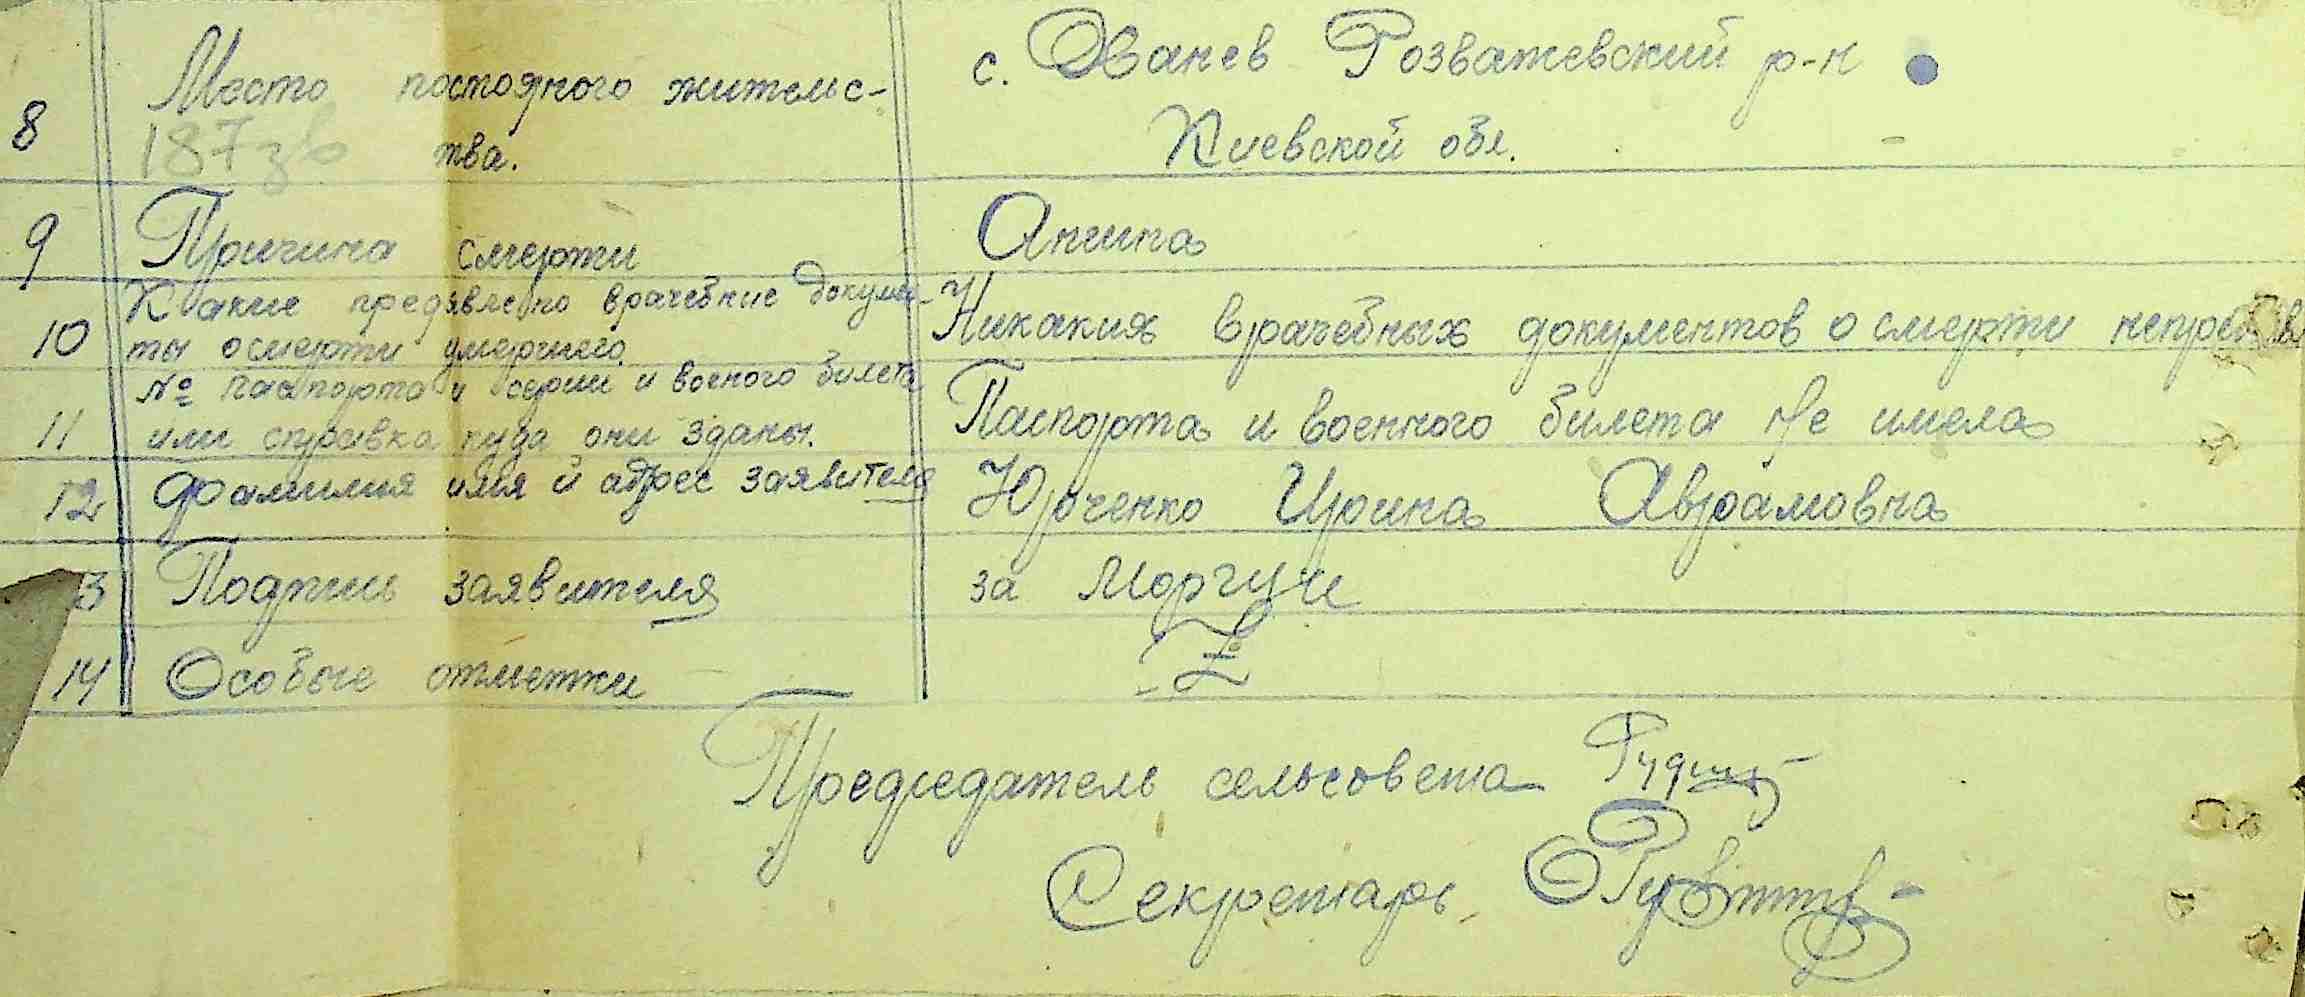 8 Место постоянного жительс- с. Жванев Розважевский р-н
тва. Киевской обл.
9 Причина смерти Ангина
10 Какие предявлено врачебние докумен-
ты о смерти умершего. Никаких врачебных документов о смерти
11 № паспорта и серии и военого билета
или справка куда они зданы. Паспорта и военного билета не имела
12 Фамилия имя и адрес заявителя Юрченко Ирина Аврамовна
13 Подпись заявителя за
14 Особые отметки
Председатель сельсовета
Секретарь